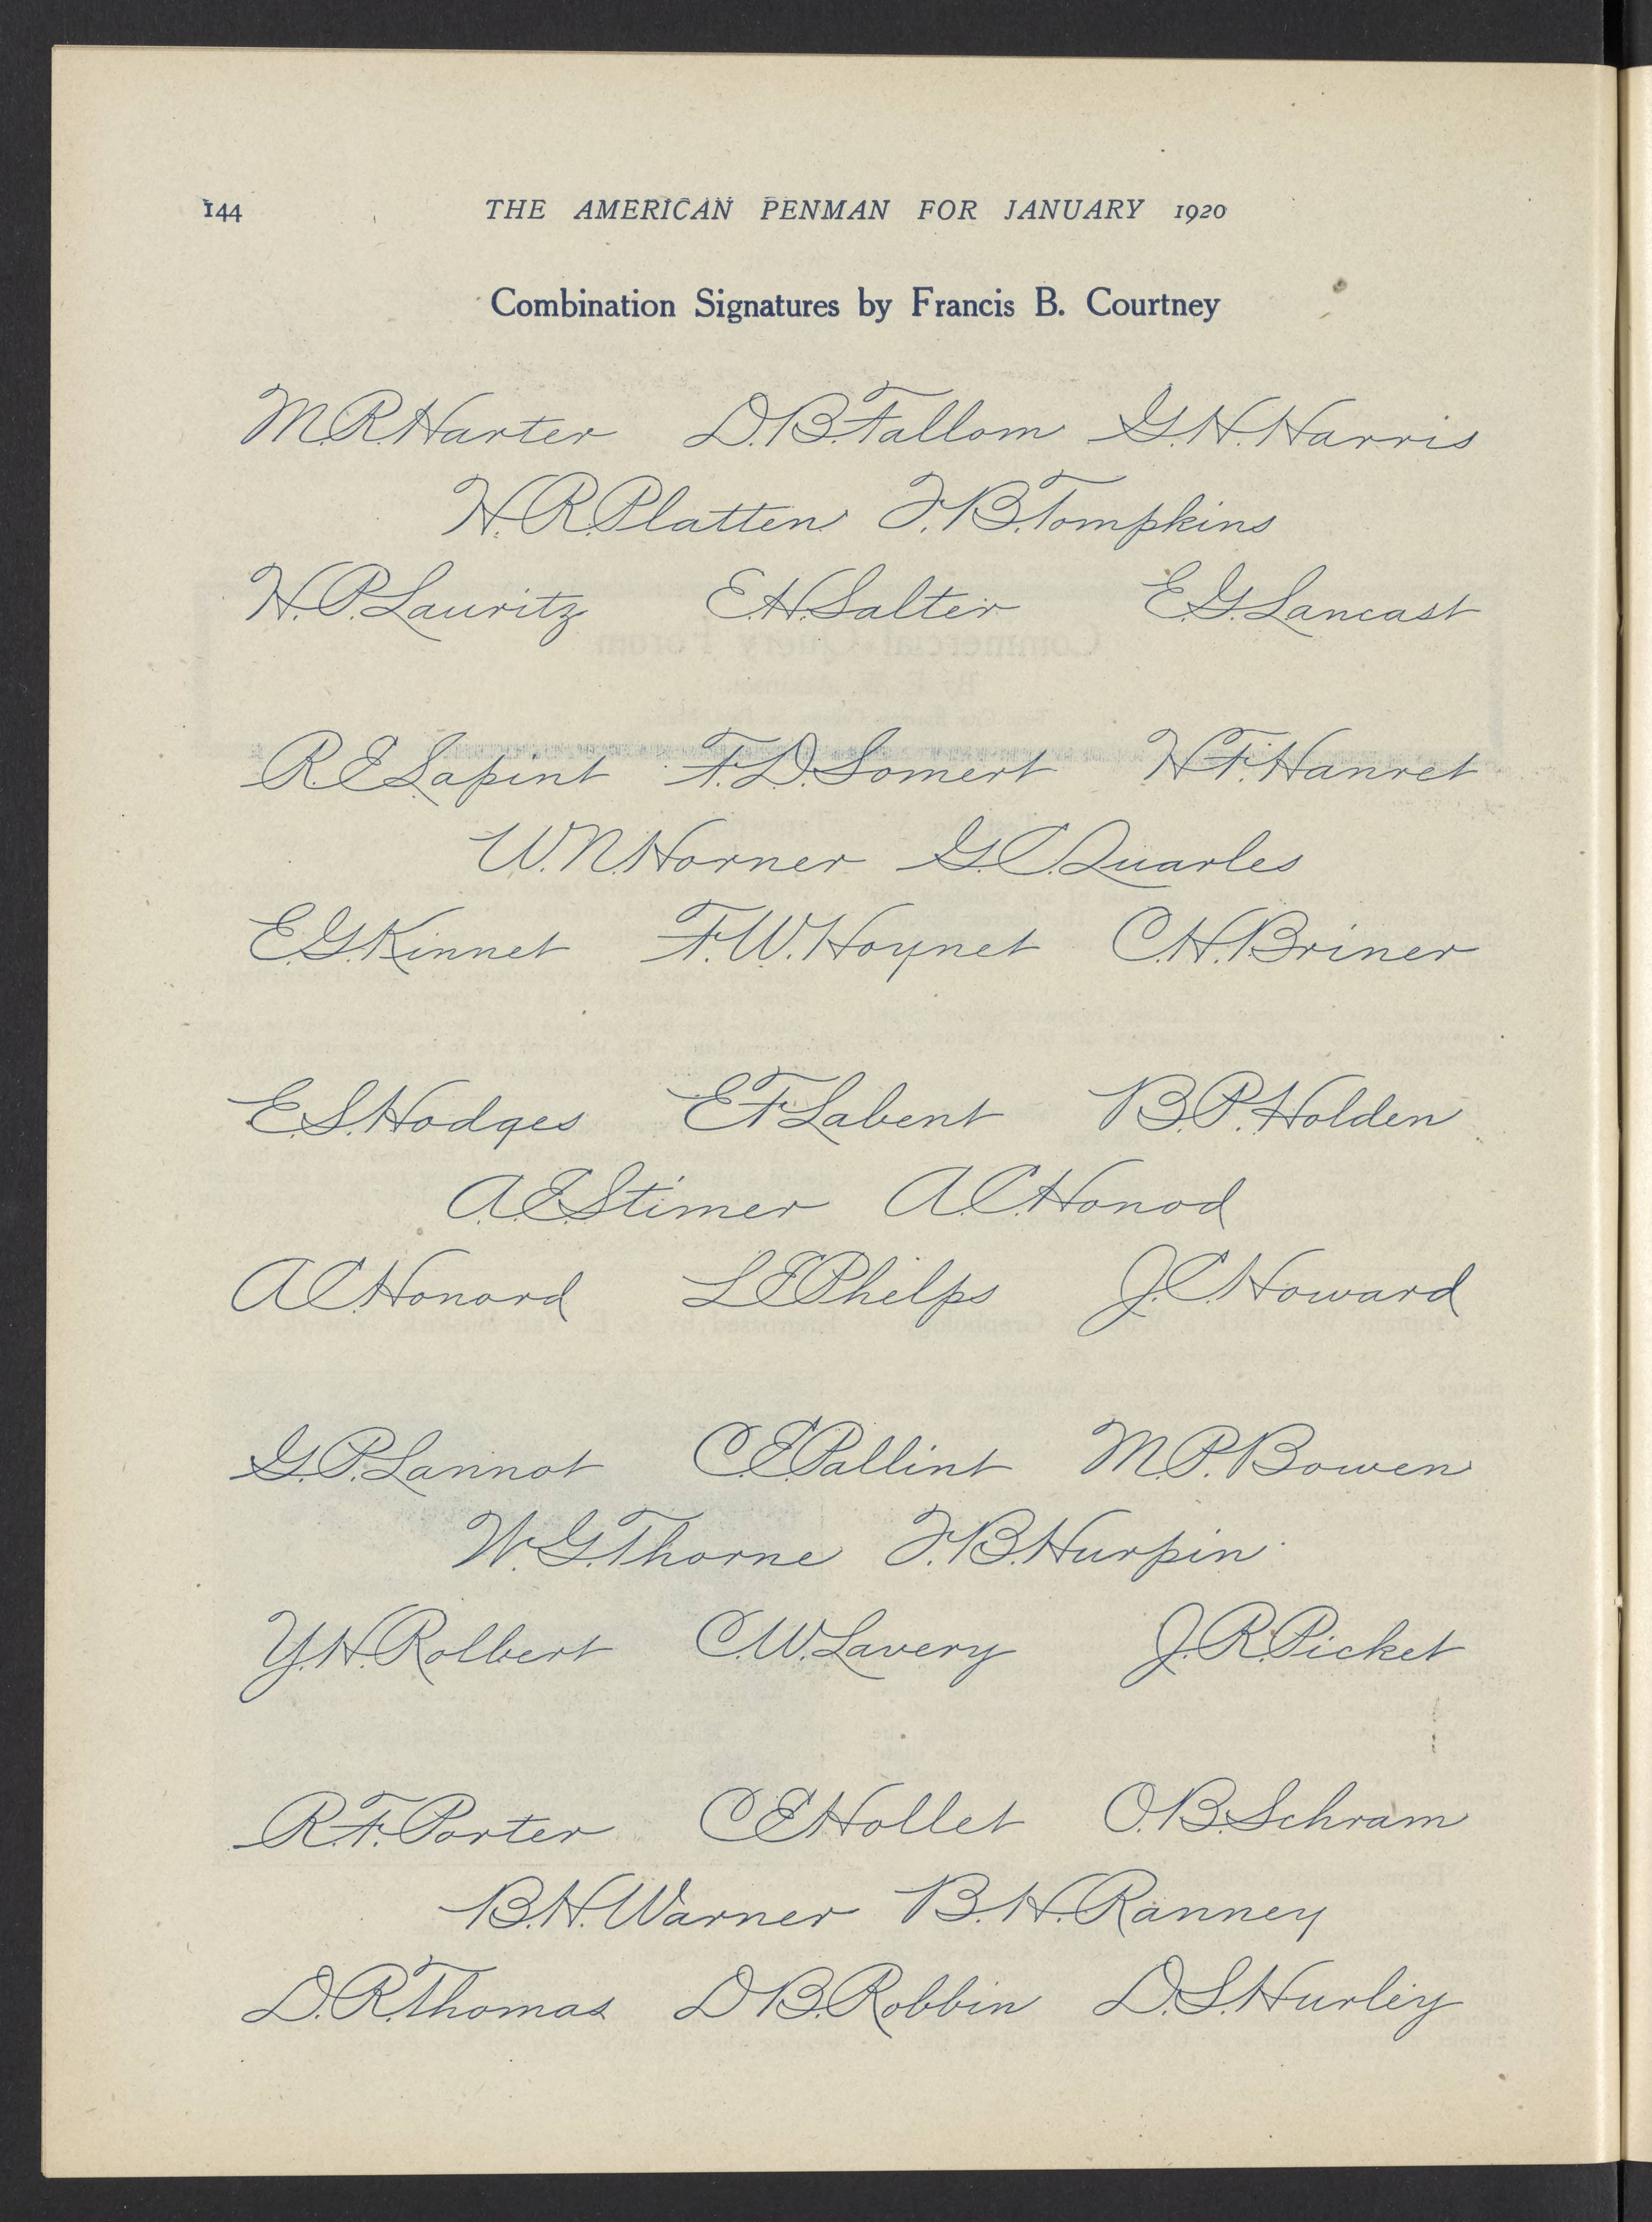 144 THE AMERICAN PENMAN FOR JANUARY 1920
Combination Signatures by Francis B. Courtney
M.R.Harter D.B.Fallom G.H.Harris
H.R.Platten F.B.Tompkins
H.P.Lauritz E.H.Salter E.G.Lancast
R.E.Lapint F.D.Somert H.F.Hanret
W.N.Horner G.C.Quarles
E.G.Kinnet F.W.Hoynet C.H.Briner
E.S.Hodges E.F.Labent B.P.Holden
A.E.Stimer A.C.Honod
A.C.Honord L.E.Phelps J.C.Howard
G.P.Lannot C.E.Pallint M.P.Bowen
W.G.Thorne F.B.Hurpin
Y.H.Rolbert C.W.Lavery J.R.Picket
R.F.Porter C.E.Hollet O.B.Schram
B.H.Warner B.H.Ranney
D.R.Thomas D.B.Robbin D.S.Hurley